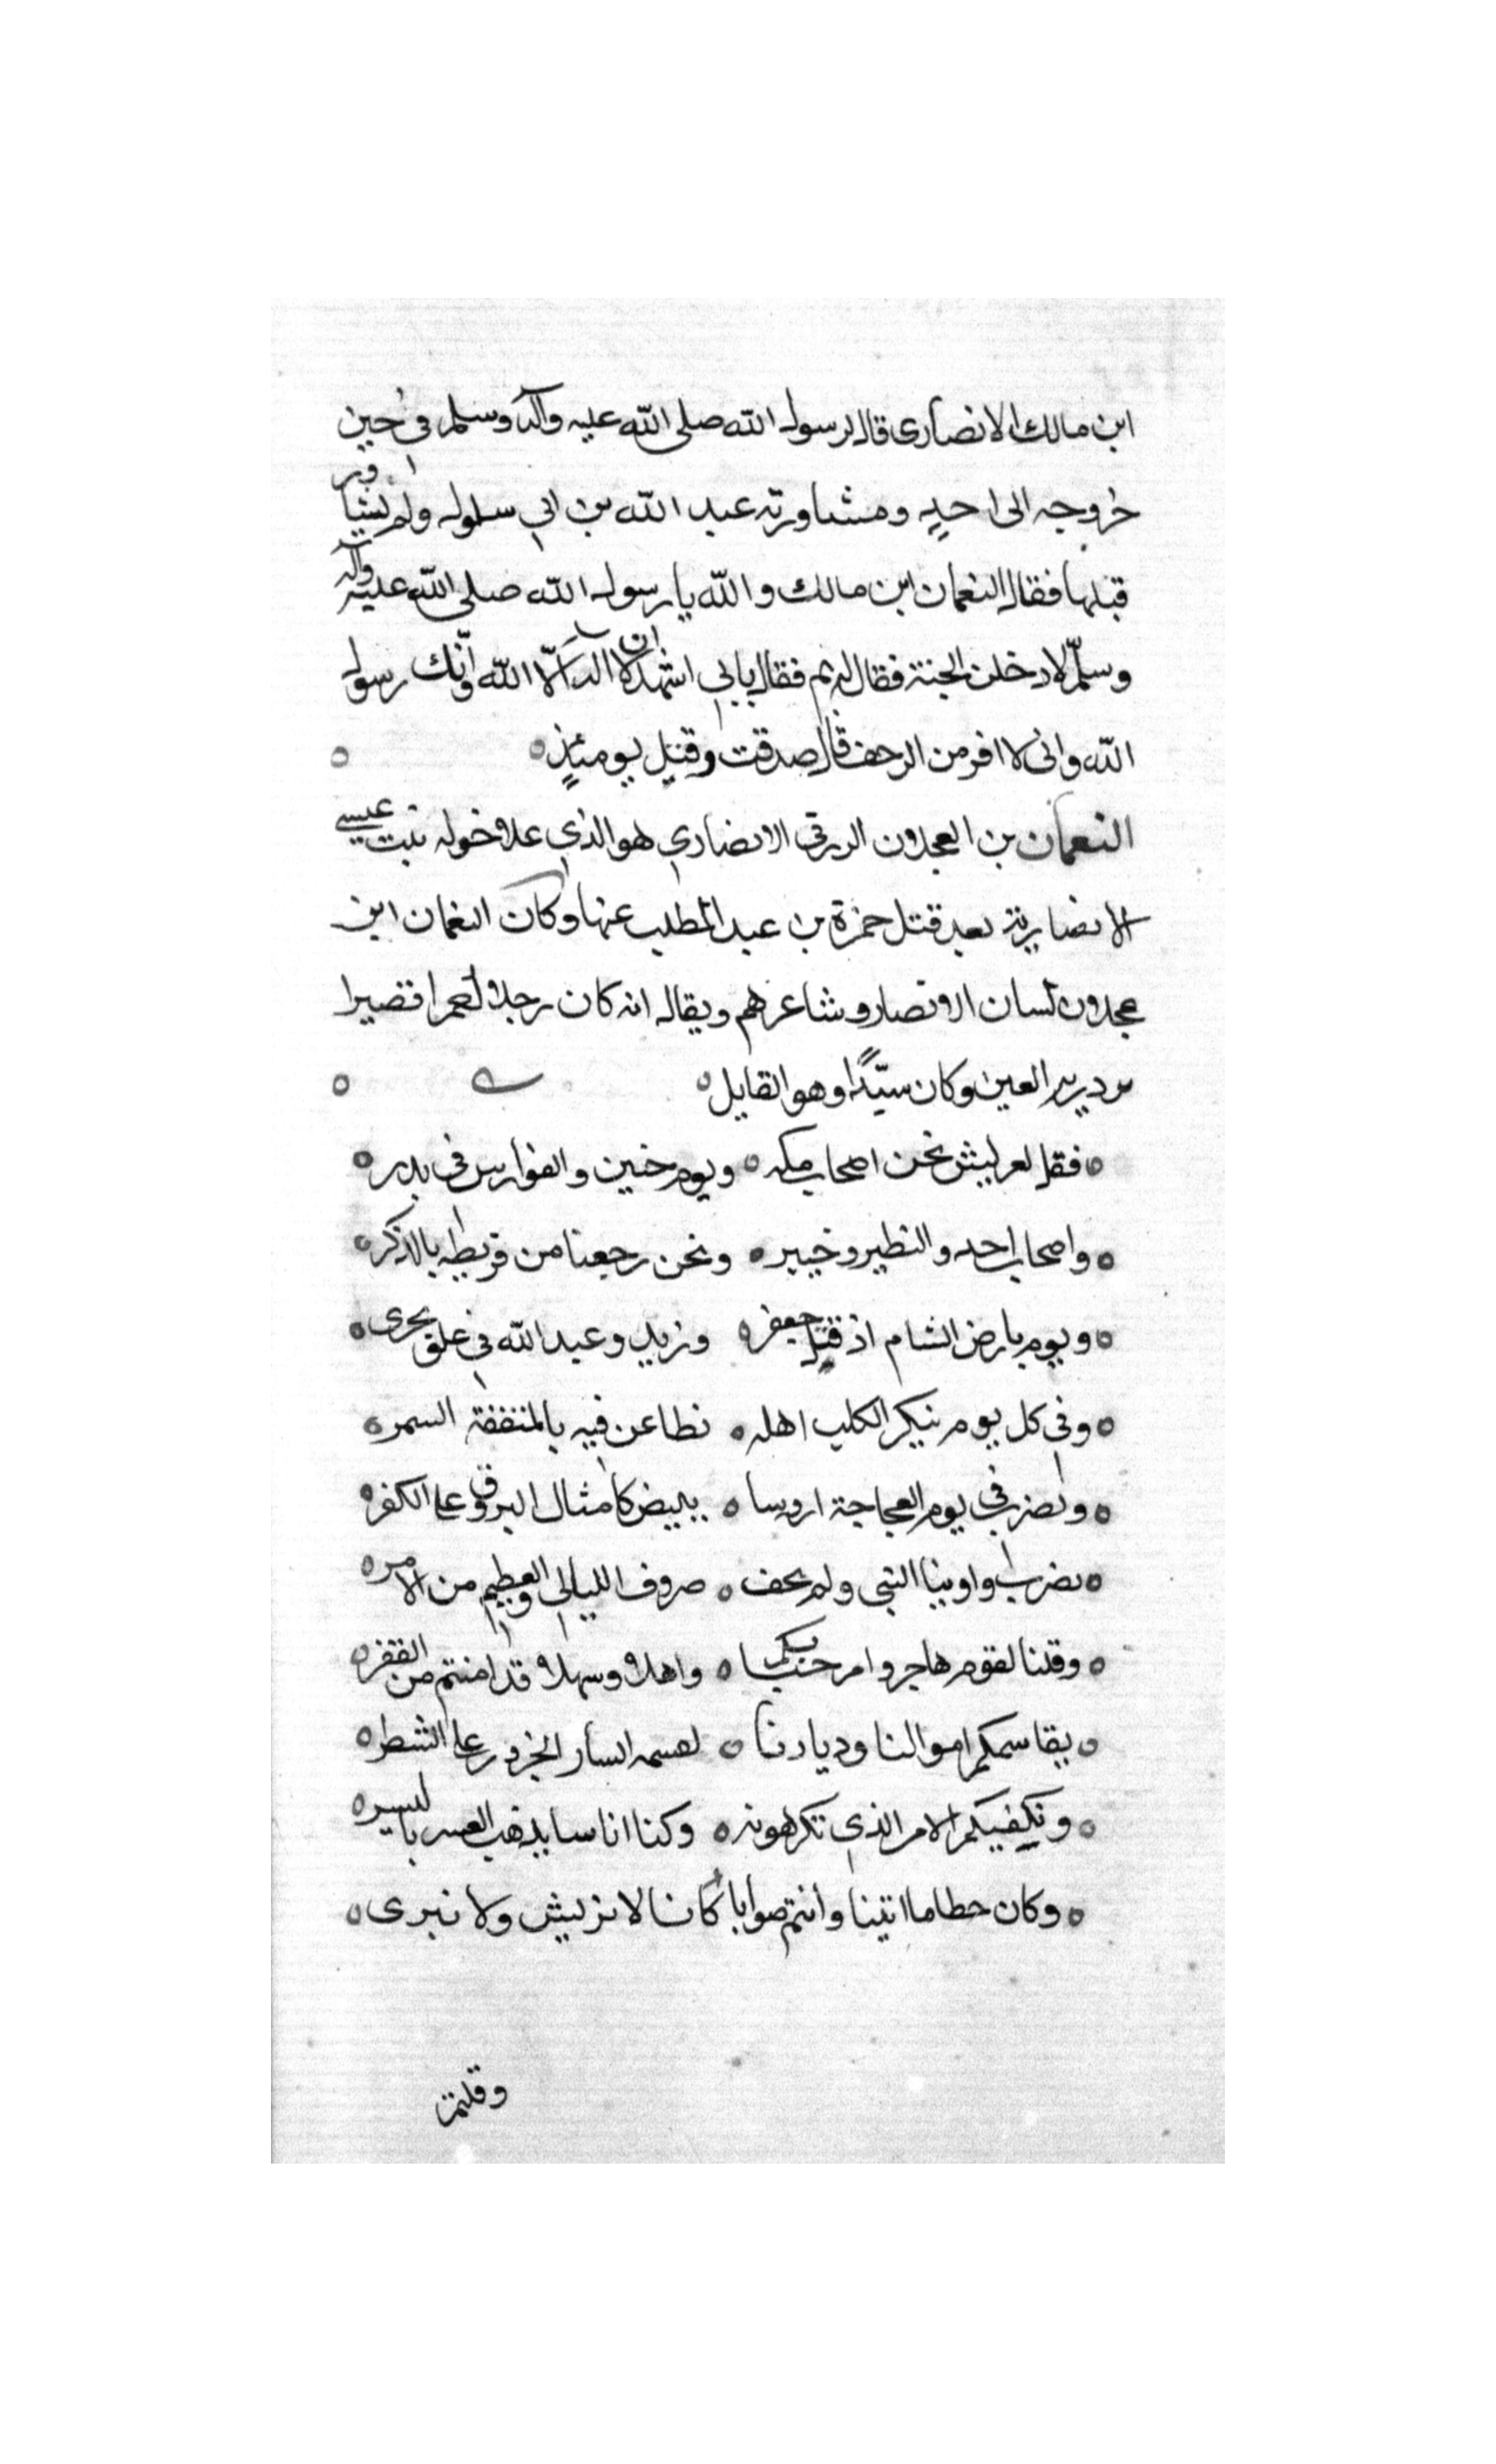 ابن مالك الانصاري قال لرسول الله صلى الله عليه وآله وسلم في حين
خروجه الى احدٍ ومشاورته عبد الله بن ابي سلول ولم يشاور
قبلها فقال النعمان ابن مالك والله يا رسول الله صلى الله عليه وآله
وسلّم لادخلن الجنة فقال له بم فقال باني اشهد ان لا اله الّا الله وانّك رسول
الله واني لا افر من الزحف قال صدقت وقتل يومئذٍ ه
النعمان بن العجلان الزرقي الانصاري هو الذي علا خوله بنت عيسى
الانصارية بعد قتل حمزة بن عبد المطلب عنها وكان النعمان ابن
عجلان لسان الانصار وشاعرهم ويقال انه كان رجلا احمر اقصيرا
العين وكان سيّدًا وهو القايل ه
ه فقل لعريش نحن اصحاب مكه ه ويوم حنين والفوارس في بدر ه
ه واصحاب احد والنظير وخيبر ه ونحن رجعنا من قريظه بالذكر ه
ه ويوم بارض الشام اذ قتل جعفر ه وزيد وعبد الله في علق يجرى ه
ه وفي كل يوم ينكر الكلب اهله ه نطاعن فيه بالمثقفة السمر ه
ه ونضرب في يوم العجاجة اروسا ه ببيض كامثال البروق على الكفر ه
ه نضرب واوينا النبي ولم نخف ه صروف الليالي والعظيم من الامر ه
ه وقلنا لقوم هاجروا مرحبا بكم ه واهلا وسهلا قد امنتم من الفقر ه
ه يقاسمكم اموالنا وديارنا ه لقسمه ايسار الجزور على الشطر ه
ه ونكفيكم الامر الذي تكرهونه ه وكنا اناسا يذهب العسر باليسر ه
ه وكان خطاما اتينا وانتم صوابا كانا لا نريش ولا نبرى ه
وقلتم